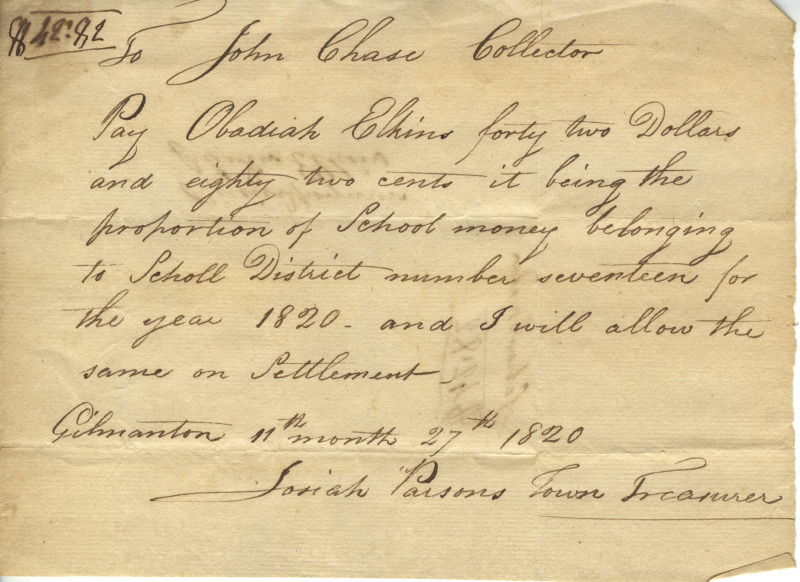 $42:82
To John Chase Collector
Pay Obadiah Elkins forty two Dollars
and eighty two cents it being the
proportion of School money belonging
to Scholl District number seventeen for
the year 1820 - and I will allow the
same on Settlement
Gilmanton 11th month 27th 1820
Josiah Parsons Town Treasurer